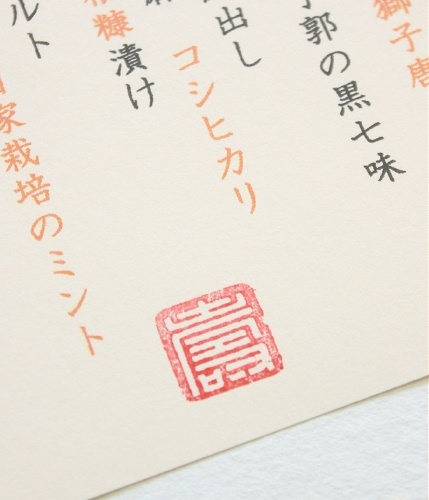 獅子唐
子郭の黒七味
出し
コシヒカリ
糠漬け
ルト
家栽培のミント
壽